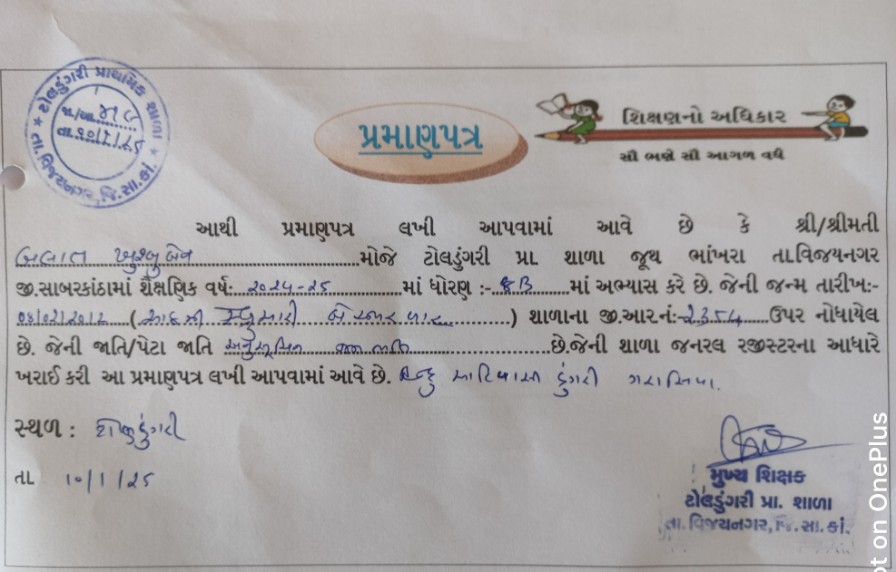 ટોલડુંગરી પ્રાથમિક શાળા
જા./આ.
તા. ૧૦/૧/૨૫
તા. વિજયનગર, જિ. સા. કાં.
પ્રમાણપત્ર
શિક્ષણનો અધિકાર
સૌ ભણે સૌ આગળ વધે
આથી પ્રમાણપત્ર લખી આપવામાં આવે છે કે શ્રી/શ્રીમતી
ખુશ્બુબેન મોજે ટોલડુંગરી પ્રા. શાળા જૂથ ભાંખરા તા.વિજયનગર
જી.સાબરકાંઠામાં શૈક્ષણિક વર્ષઃ ૨૦૨૪-૨૫ માં ધોરણ :- 8B માં અભ્યાસ કરે છે. જેની જન્મ તારીખ:-
(બે હજાર બાર) શાળાના જી.આર.નં:- ૨૩૫૮ ઉપર નોધાયેલ
છે. જેની જાતિ/પેટા જાતિ અનુસૂચિત જન જાતિ છે.જેની શાળા જનરલ રજીસ્ટરના આધારે
ખરાઈ કરી આ પ્રમાણપત્ર લખી આપવામાં આવે છે. હિન્દુ આદિવાસી ડુંગરી ગરાસિયા.
સ્થળ : ટોલડુંગરી
તા ૧૦/૧/૨૫
મુખ્ય શિક્ષક
ટોલડુંગરી પ્રા. શાળા
તા. વિજયનગર, જિ. સા. કાં.
ot on OnePlus